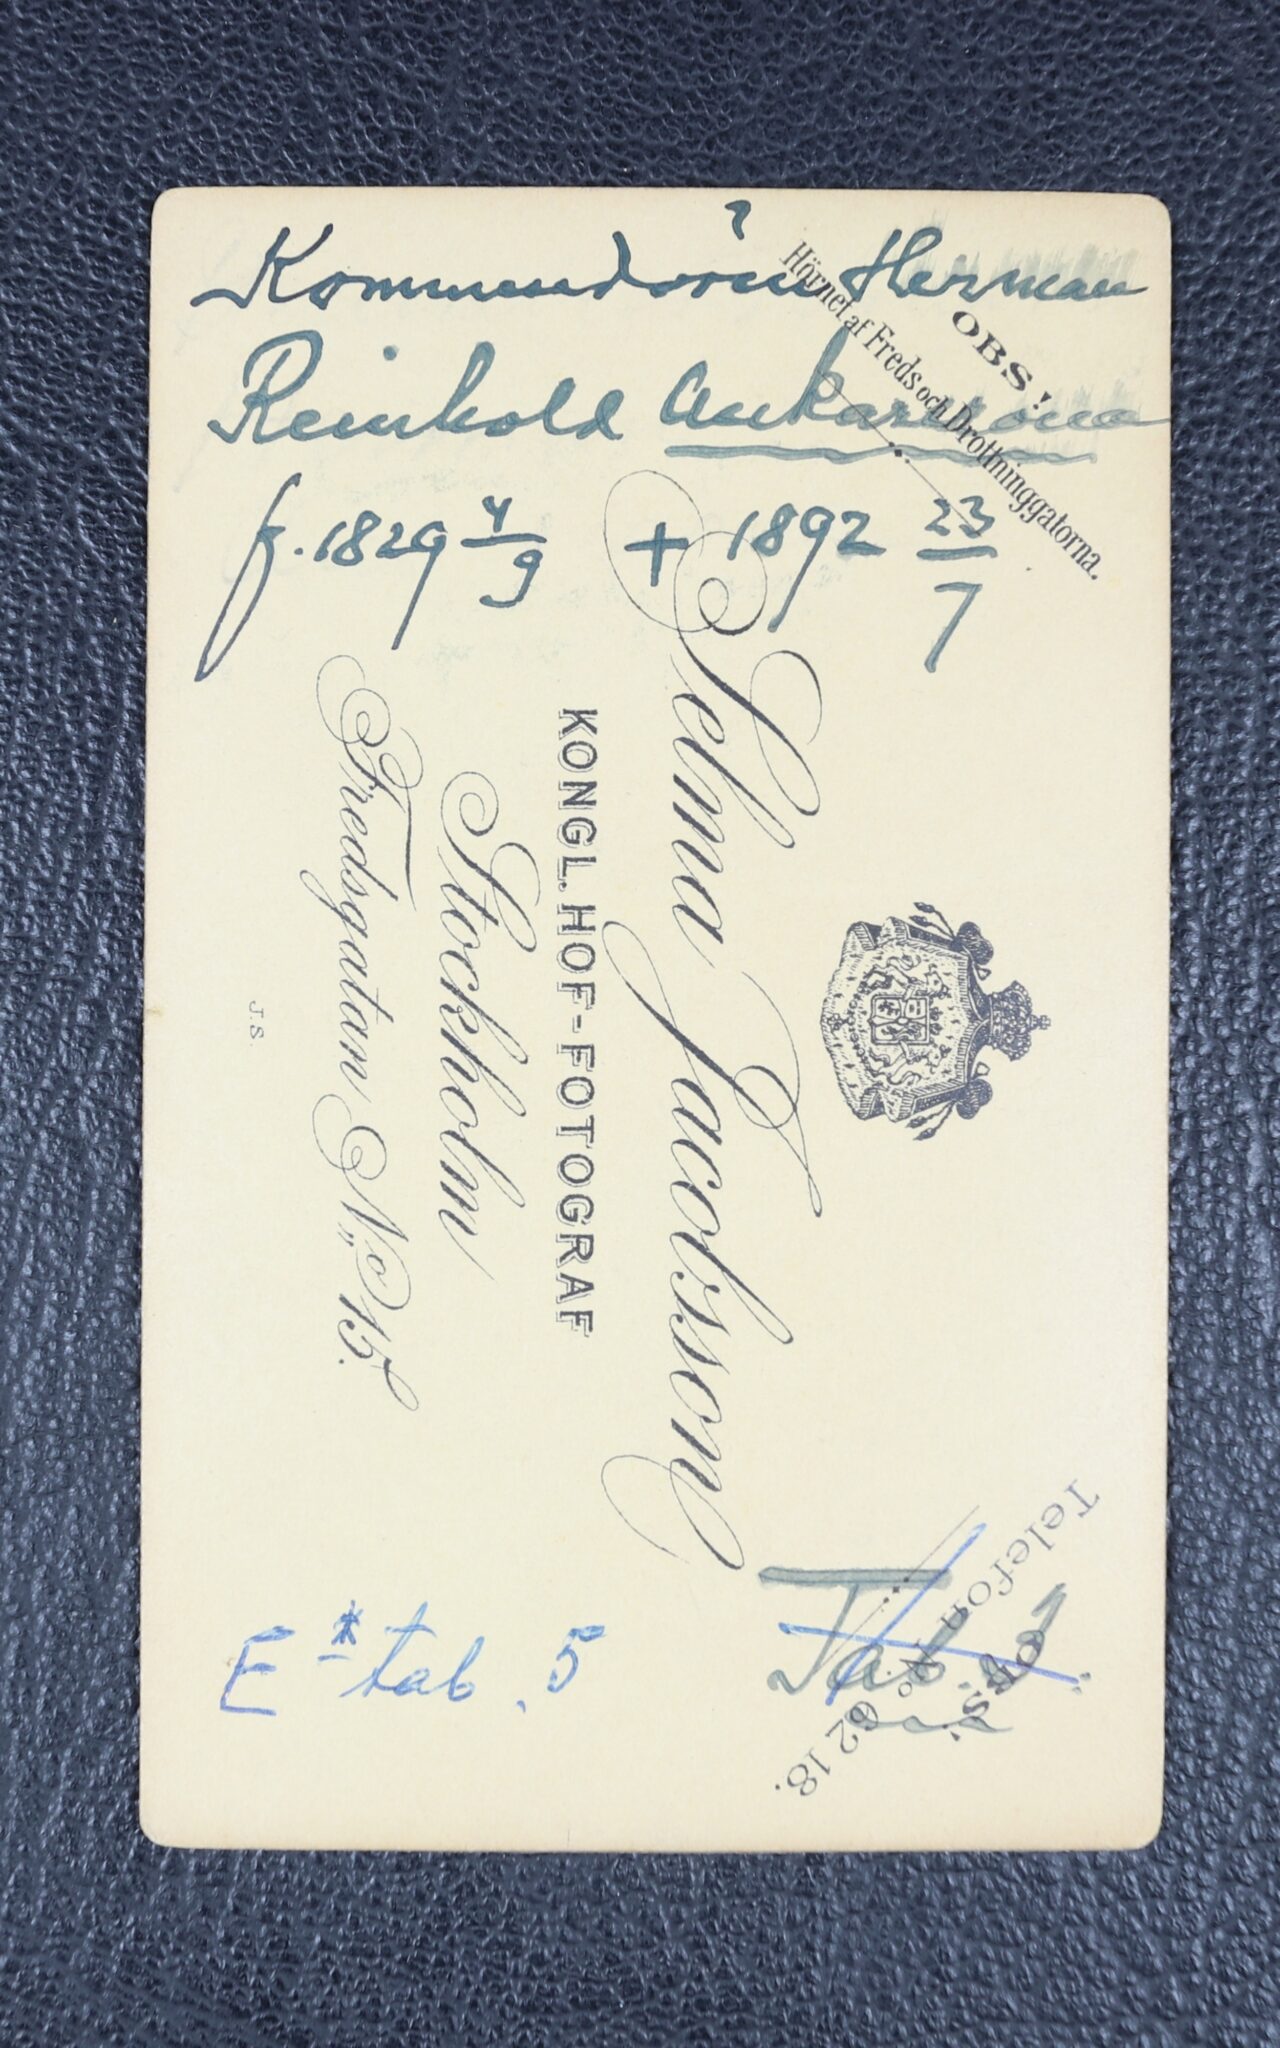 Kommendören Herman
Reinhold Ankarcrona
f. 1829 4/9 + 1892 23/7
OBS!
Hörnet af Freds och Drottninggatorna.
Selma Jacobsson
KONGL. HOF-FOTOGRAF
Stockholm
Fredsgatan No 15.
J.S.
OBS!
Telefon No 62 18.
Tab.
E * tab. 5